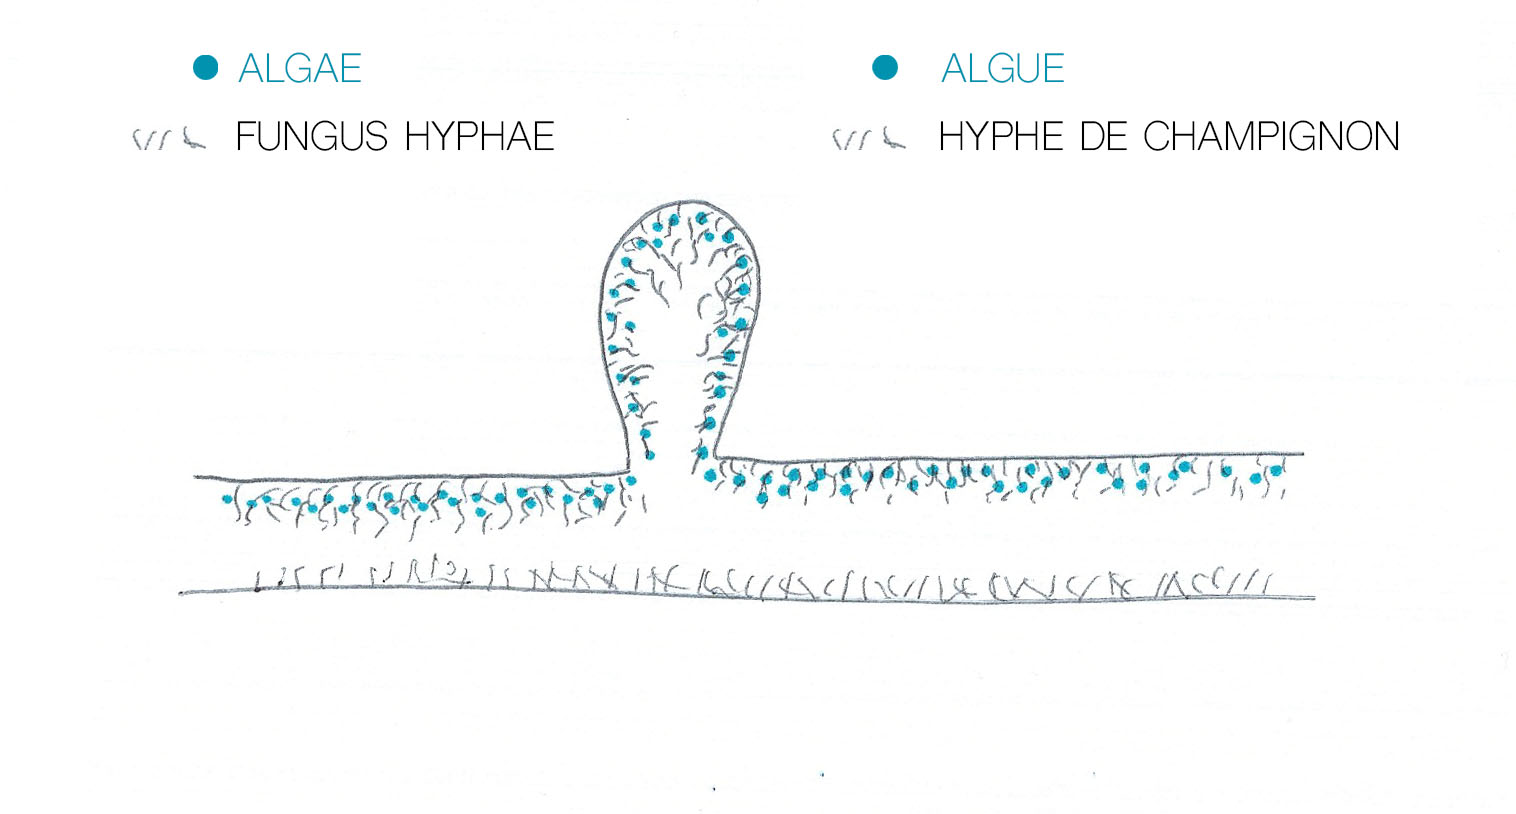 ALGAE
FUNGUS HYPHAE
ALGUE
HYPHE DE CHAMPIGNON